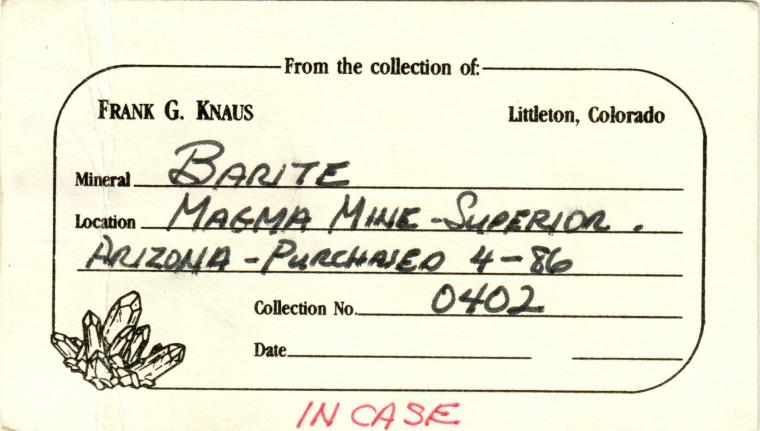 From the collection of:
FRANK G. KNAUS Littleton, Colorado
Mineral BARITE
Location MAGMA MINE - SUPERIOR.
ARIZONA - PURCHASED 4-86
Collection No. 0402
Date
IN CASE